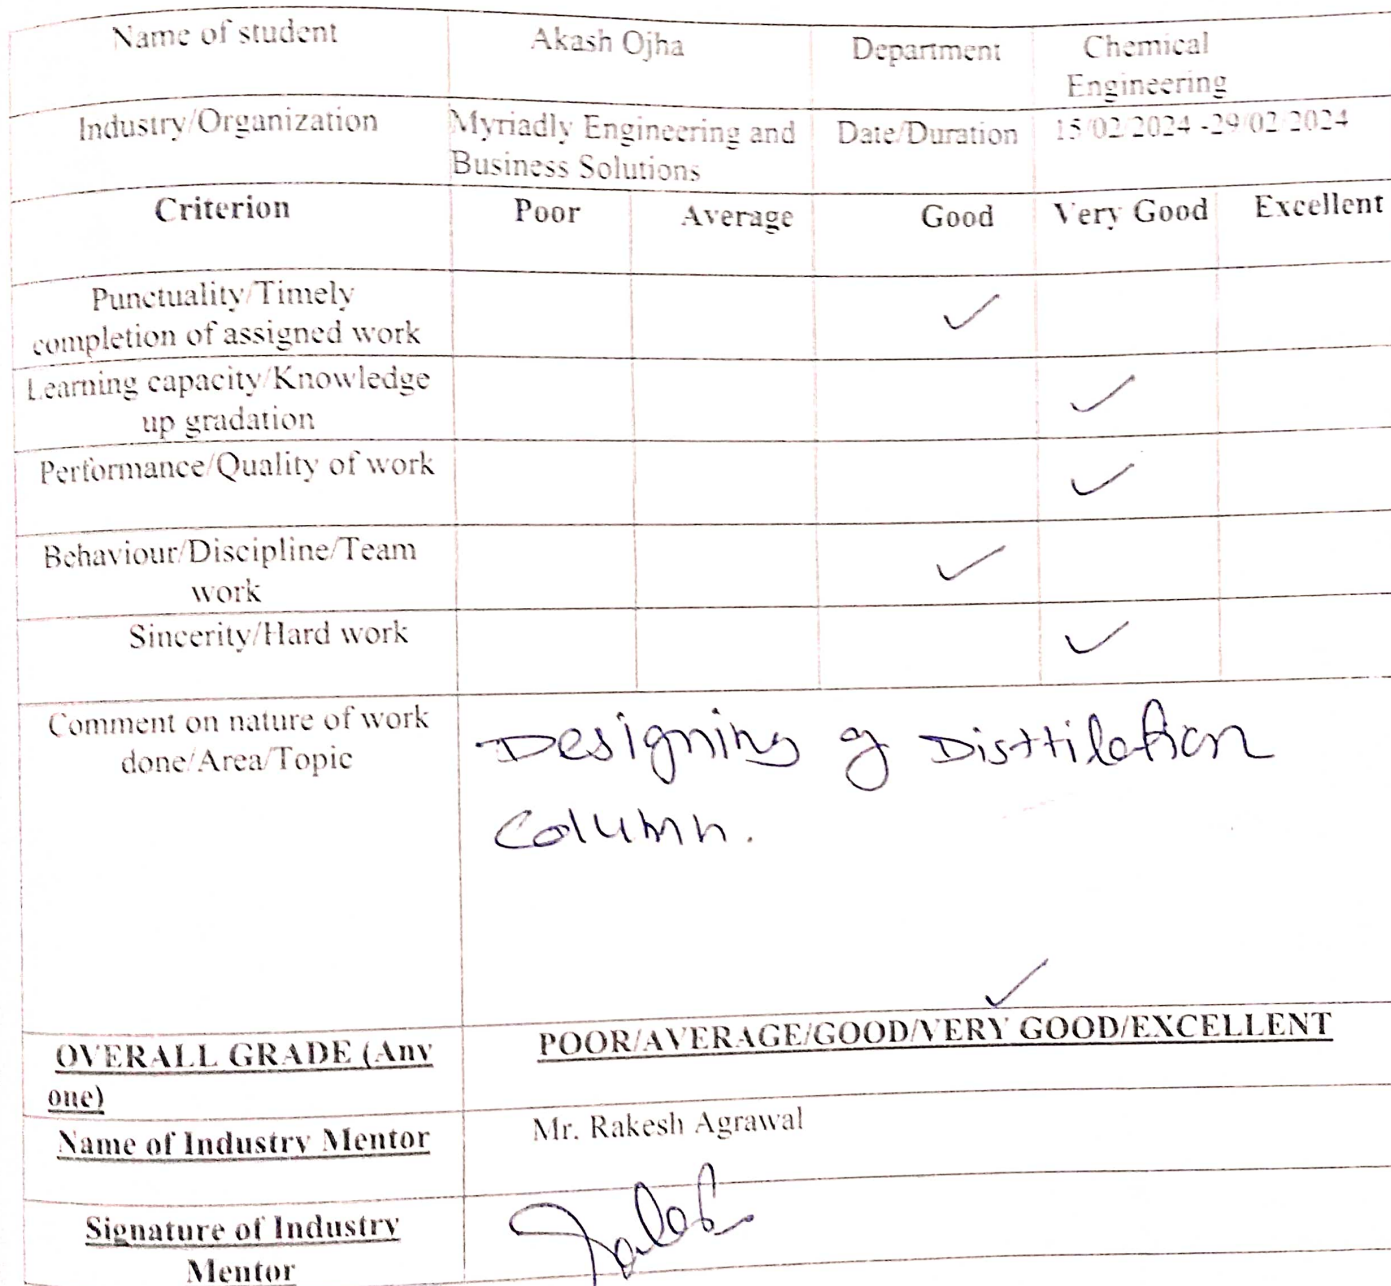 Name of student Akash Ojha Department Chemical
Engineering
Industry/Organization Myriadly Engineering and Date/Duration 15/02/2024 -29/02/2024
Business Solutions
Criterion Poor Average Good Very Good Excellent
Punctuality/Timely
completion of assigned work ✓
Learning capacity/Knowledge ✓
up gradation
Performance/Quality of work ✓
Behaviour/Discipline/Team ✓
work
Sincerity/Hard work ✓
Comment on nature of work Designing of Disttilation
done/Area/Topic
Column.
✓
OVERALL GRADE (Any POOR/AVERAGE/GOOD/VERY GOOD/EXCELLENT
one)
Name of Industry Mentor Mr. Rakesh Agrawal
Signature of Industry
Mentor